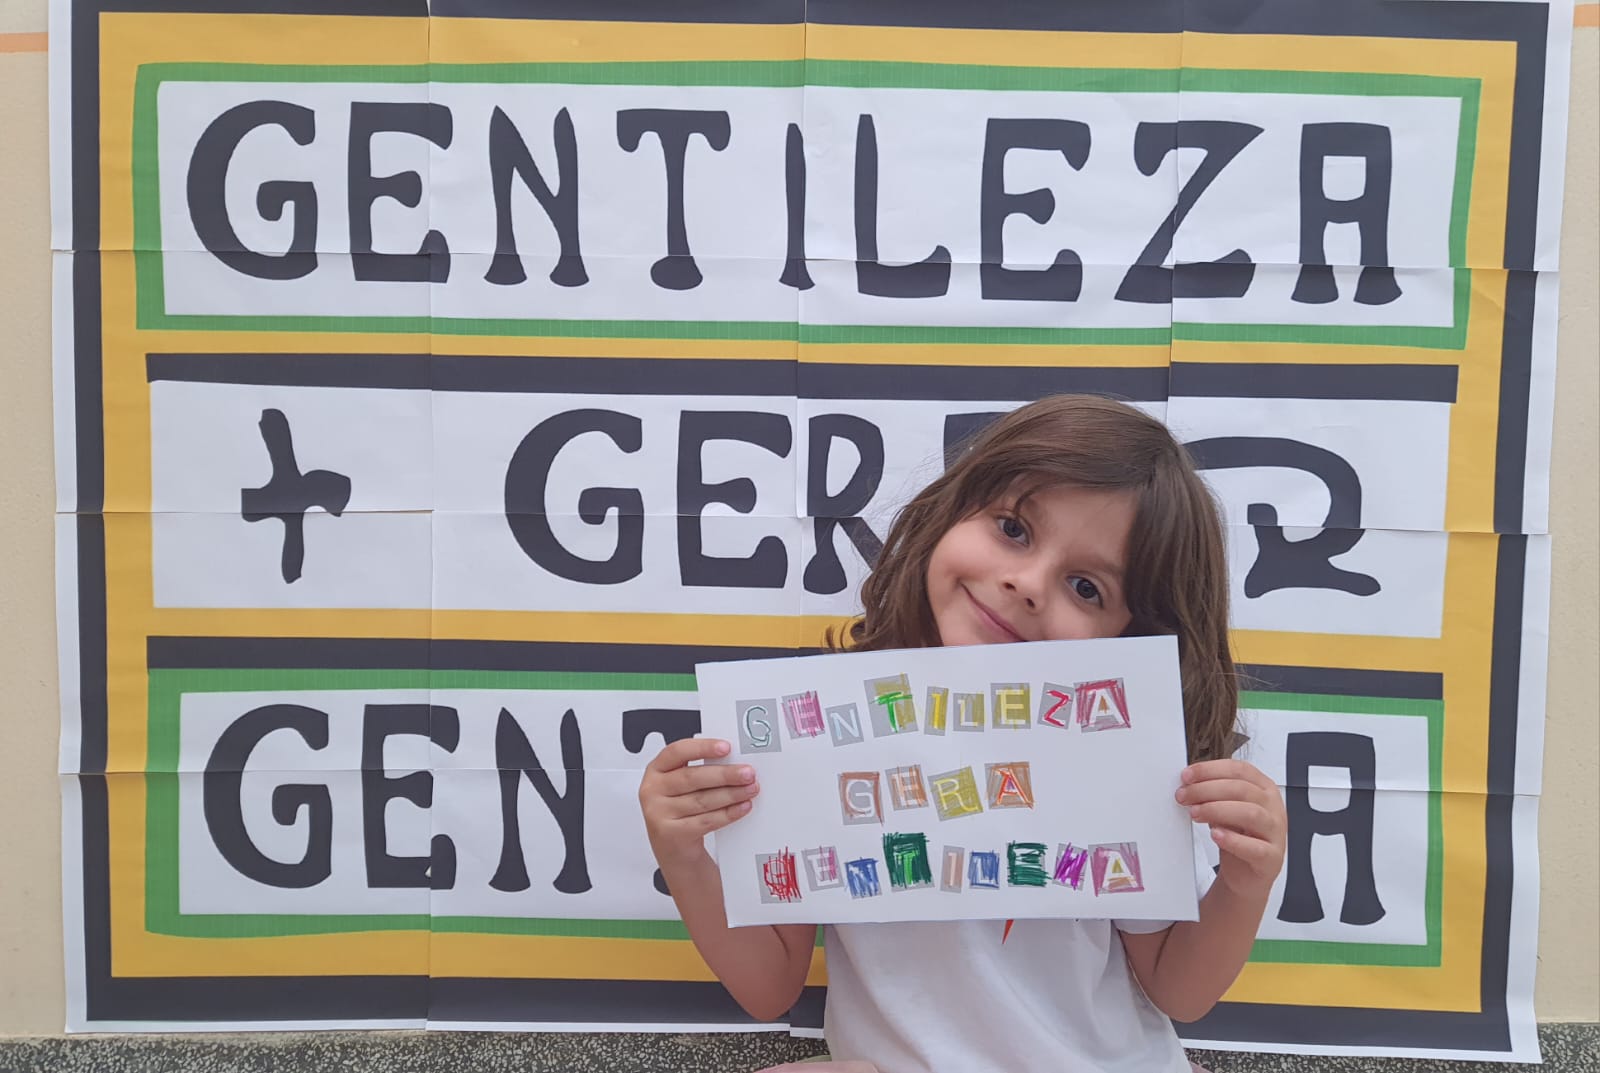 GENTILEZA
+ GER
GEN
A
GENTILEZA
GERA
GENTILEZA